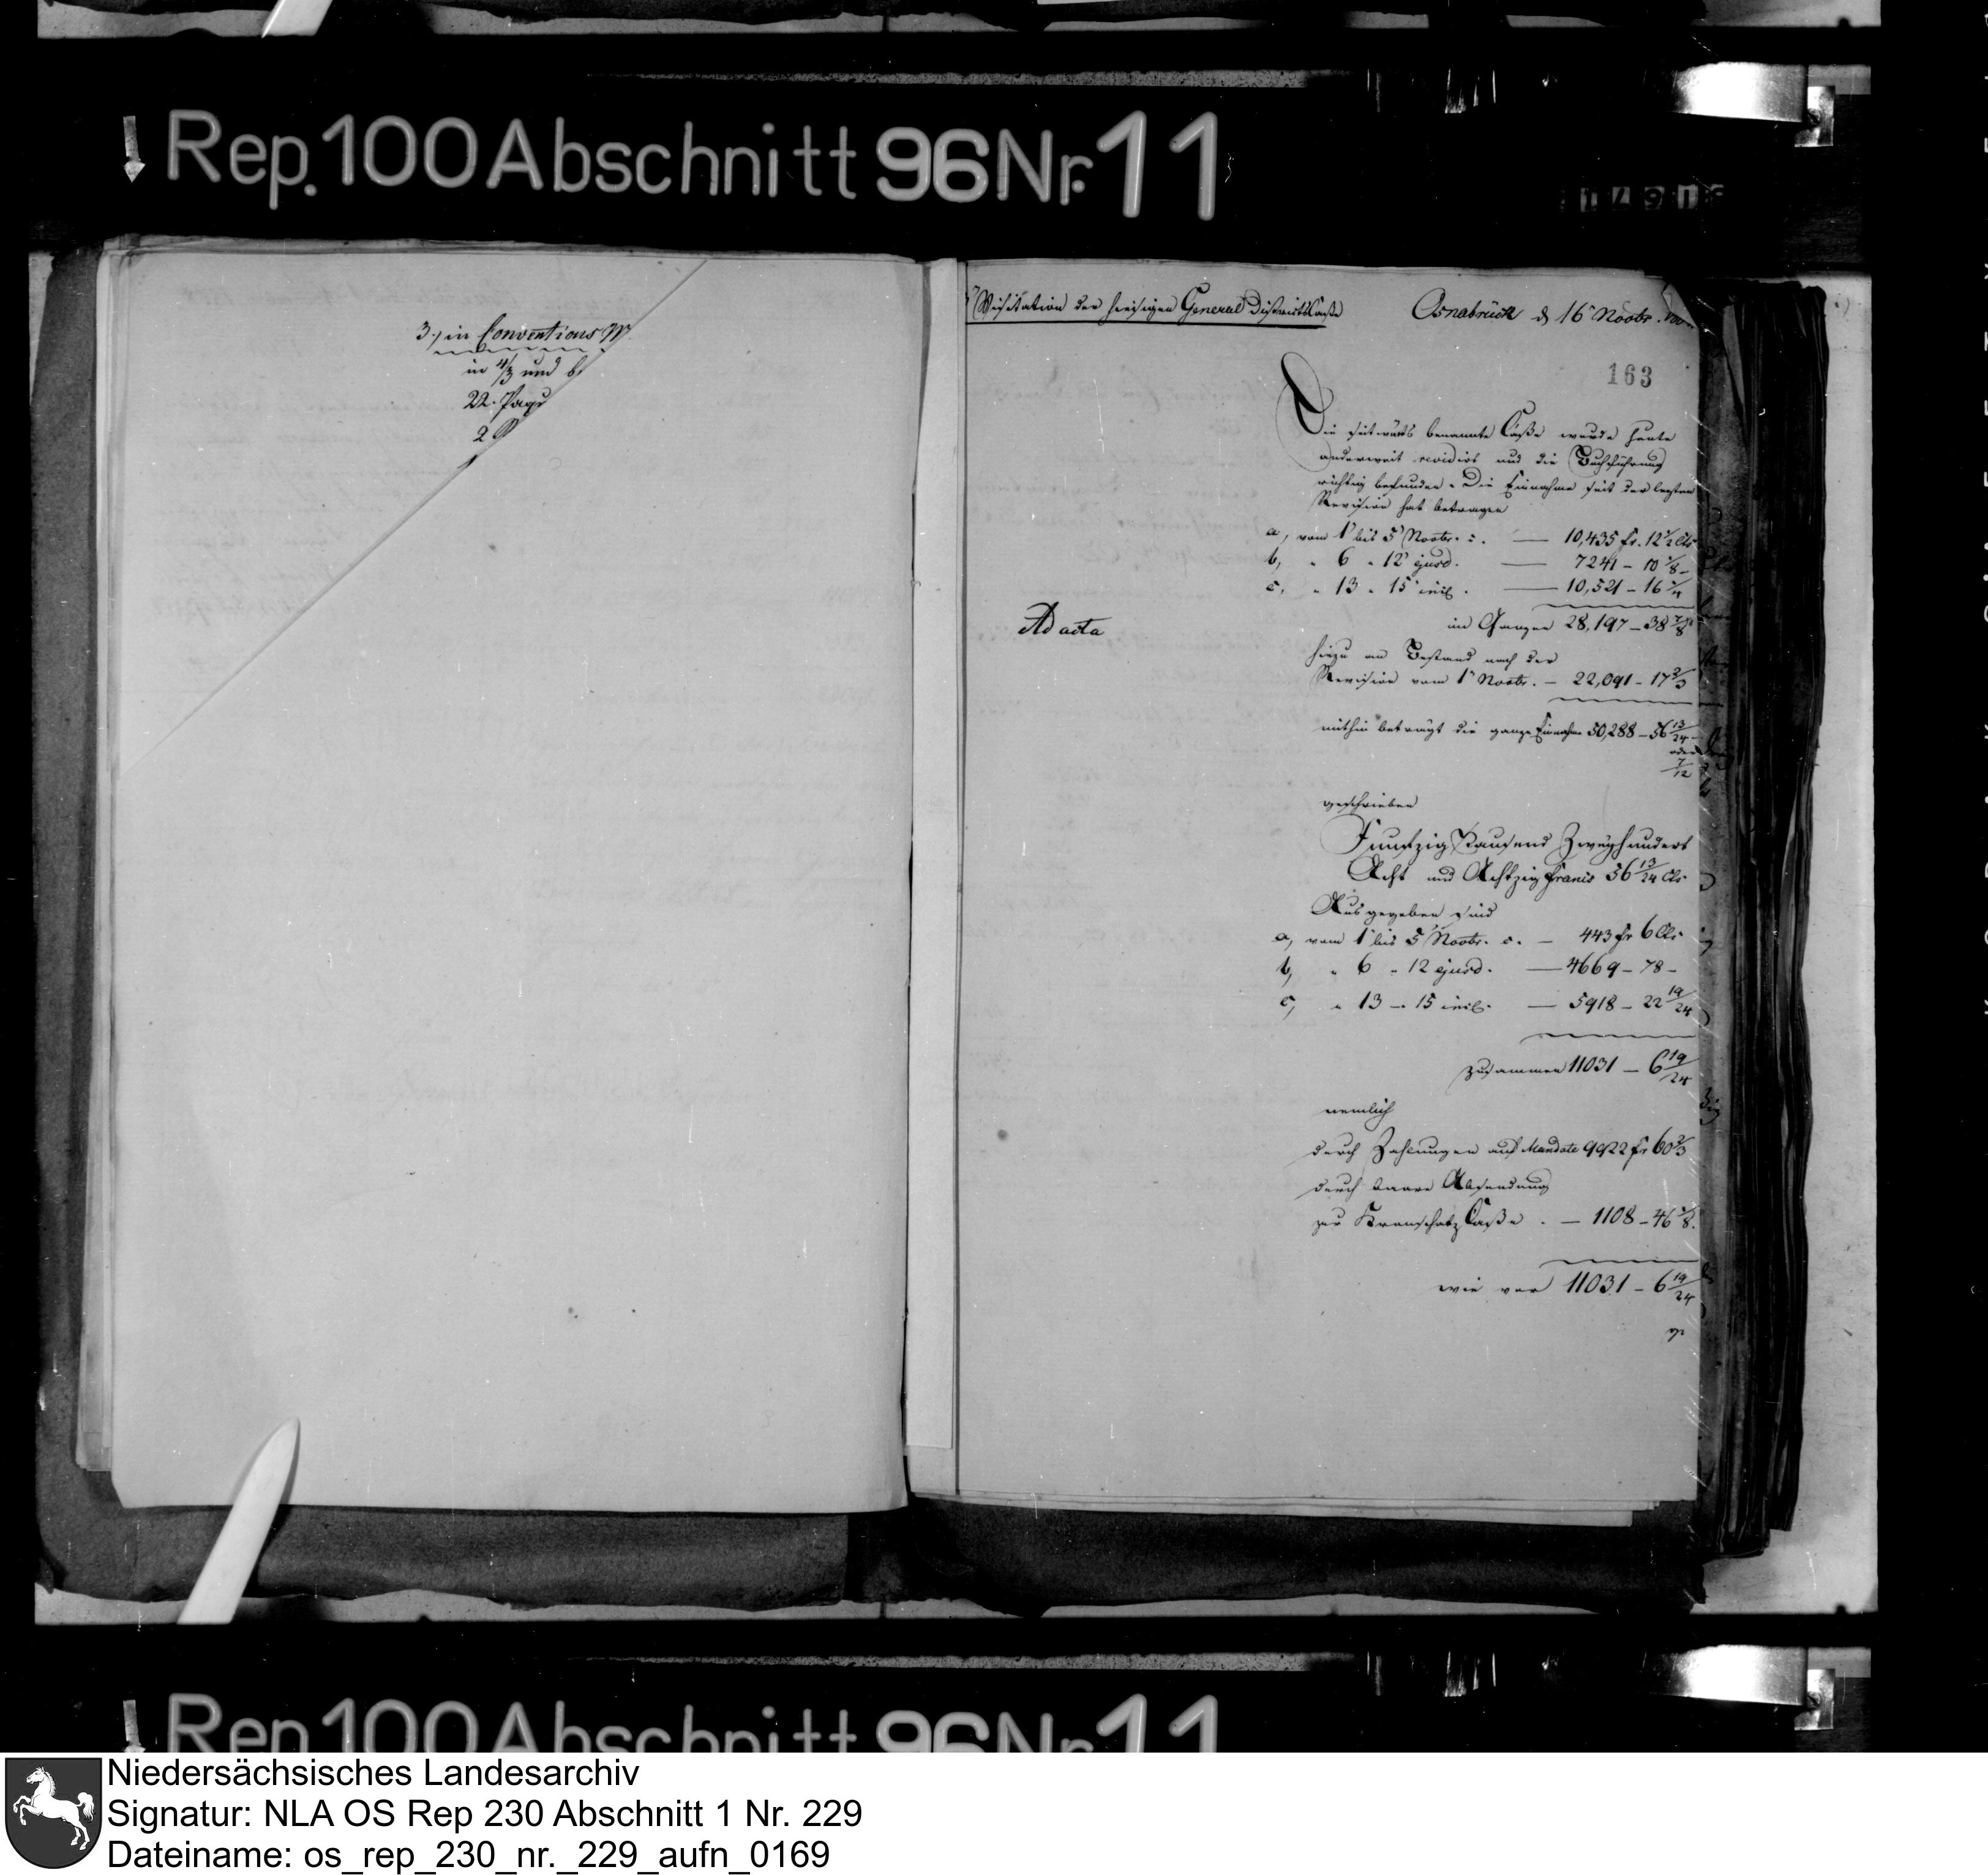 Rep. 100 Abschnitt 96 Nr. 11
3.) in Conventions M
in 4/3 und
22. Page
2
Visitation der hiesigen General DistrictsCasse
Osnabrück d 16 Novbr.
163
Die seitwärts benannte Casse wurde heute
anderweit revidirt und die Buchführung
richtig befunden. Die Einnahme seit der letzten
Revision hat betragen
a, vom 1 bis 5 Novbr. c. — 10,435 fr. 12 1/2 Cts
b, " 6 " 12 ejusd. — 7241 —
c, " 13 " 15 — 10,521 — 16
im Ganzen 28,197 — 38 7/8
hiezu an Bestand nach der
Revision vom 1 Novbr. — 22,091 — 17 2/3
mithin beträgt die ganze Einnahme 50,288 — 56 13/24
oder
7/12
geschrieben
Funfzig Tausend Zweyhundert
Acht und Achtzig francs 56 13/24 Cts
Ausgegeben sind
a, vom 1 bis 5 Novbr. c. — 443 fr 6 Cts
b, " 6 " 12 ejusd. — 4669 — 78 —
c, " 13 — 15 — 5918 — 22 19/24
zusammen 11031 — 6 19/24
nemlich
durch Zahlungen auf Mandate 9922 fr 60 2/3
durch baare Absendung
zur Kronschatz Casse . — 1108 — 46 1/8.
wie vor 11031 — 6 19/24
Ad acta
Rep. 100 Abschnitt 96 Nr. 11
Niedersächsisches Landesarchiv
Signatur: NLA OS Rep 230 Abschnitt 1 Nr. 229
Dateiname: os_rep_230_nr._229_aufn_0169